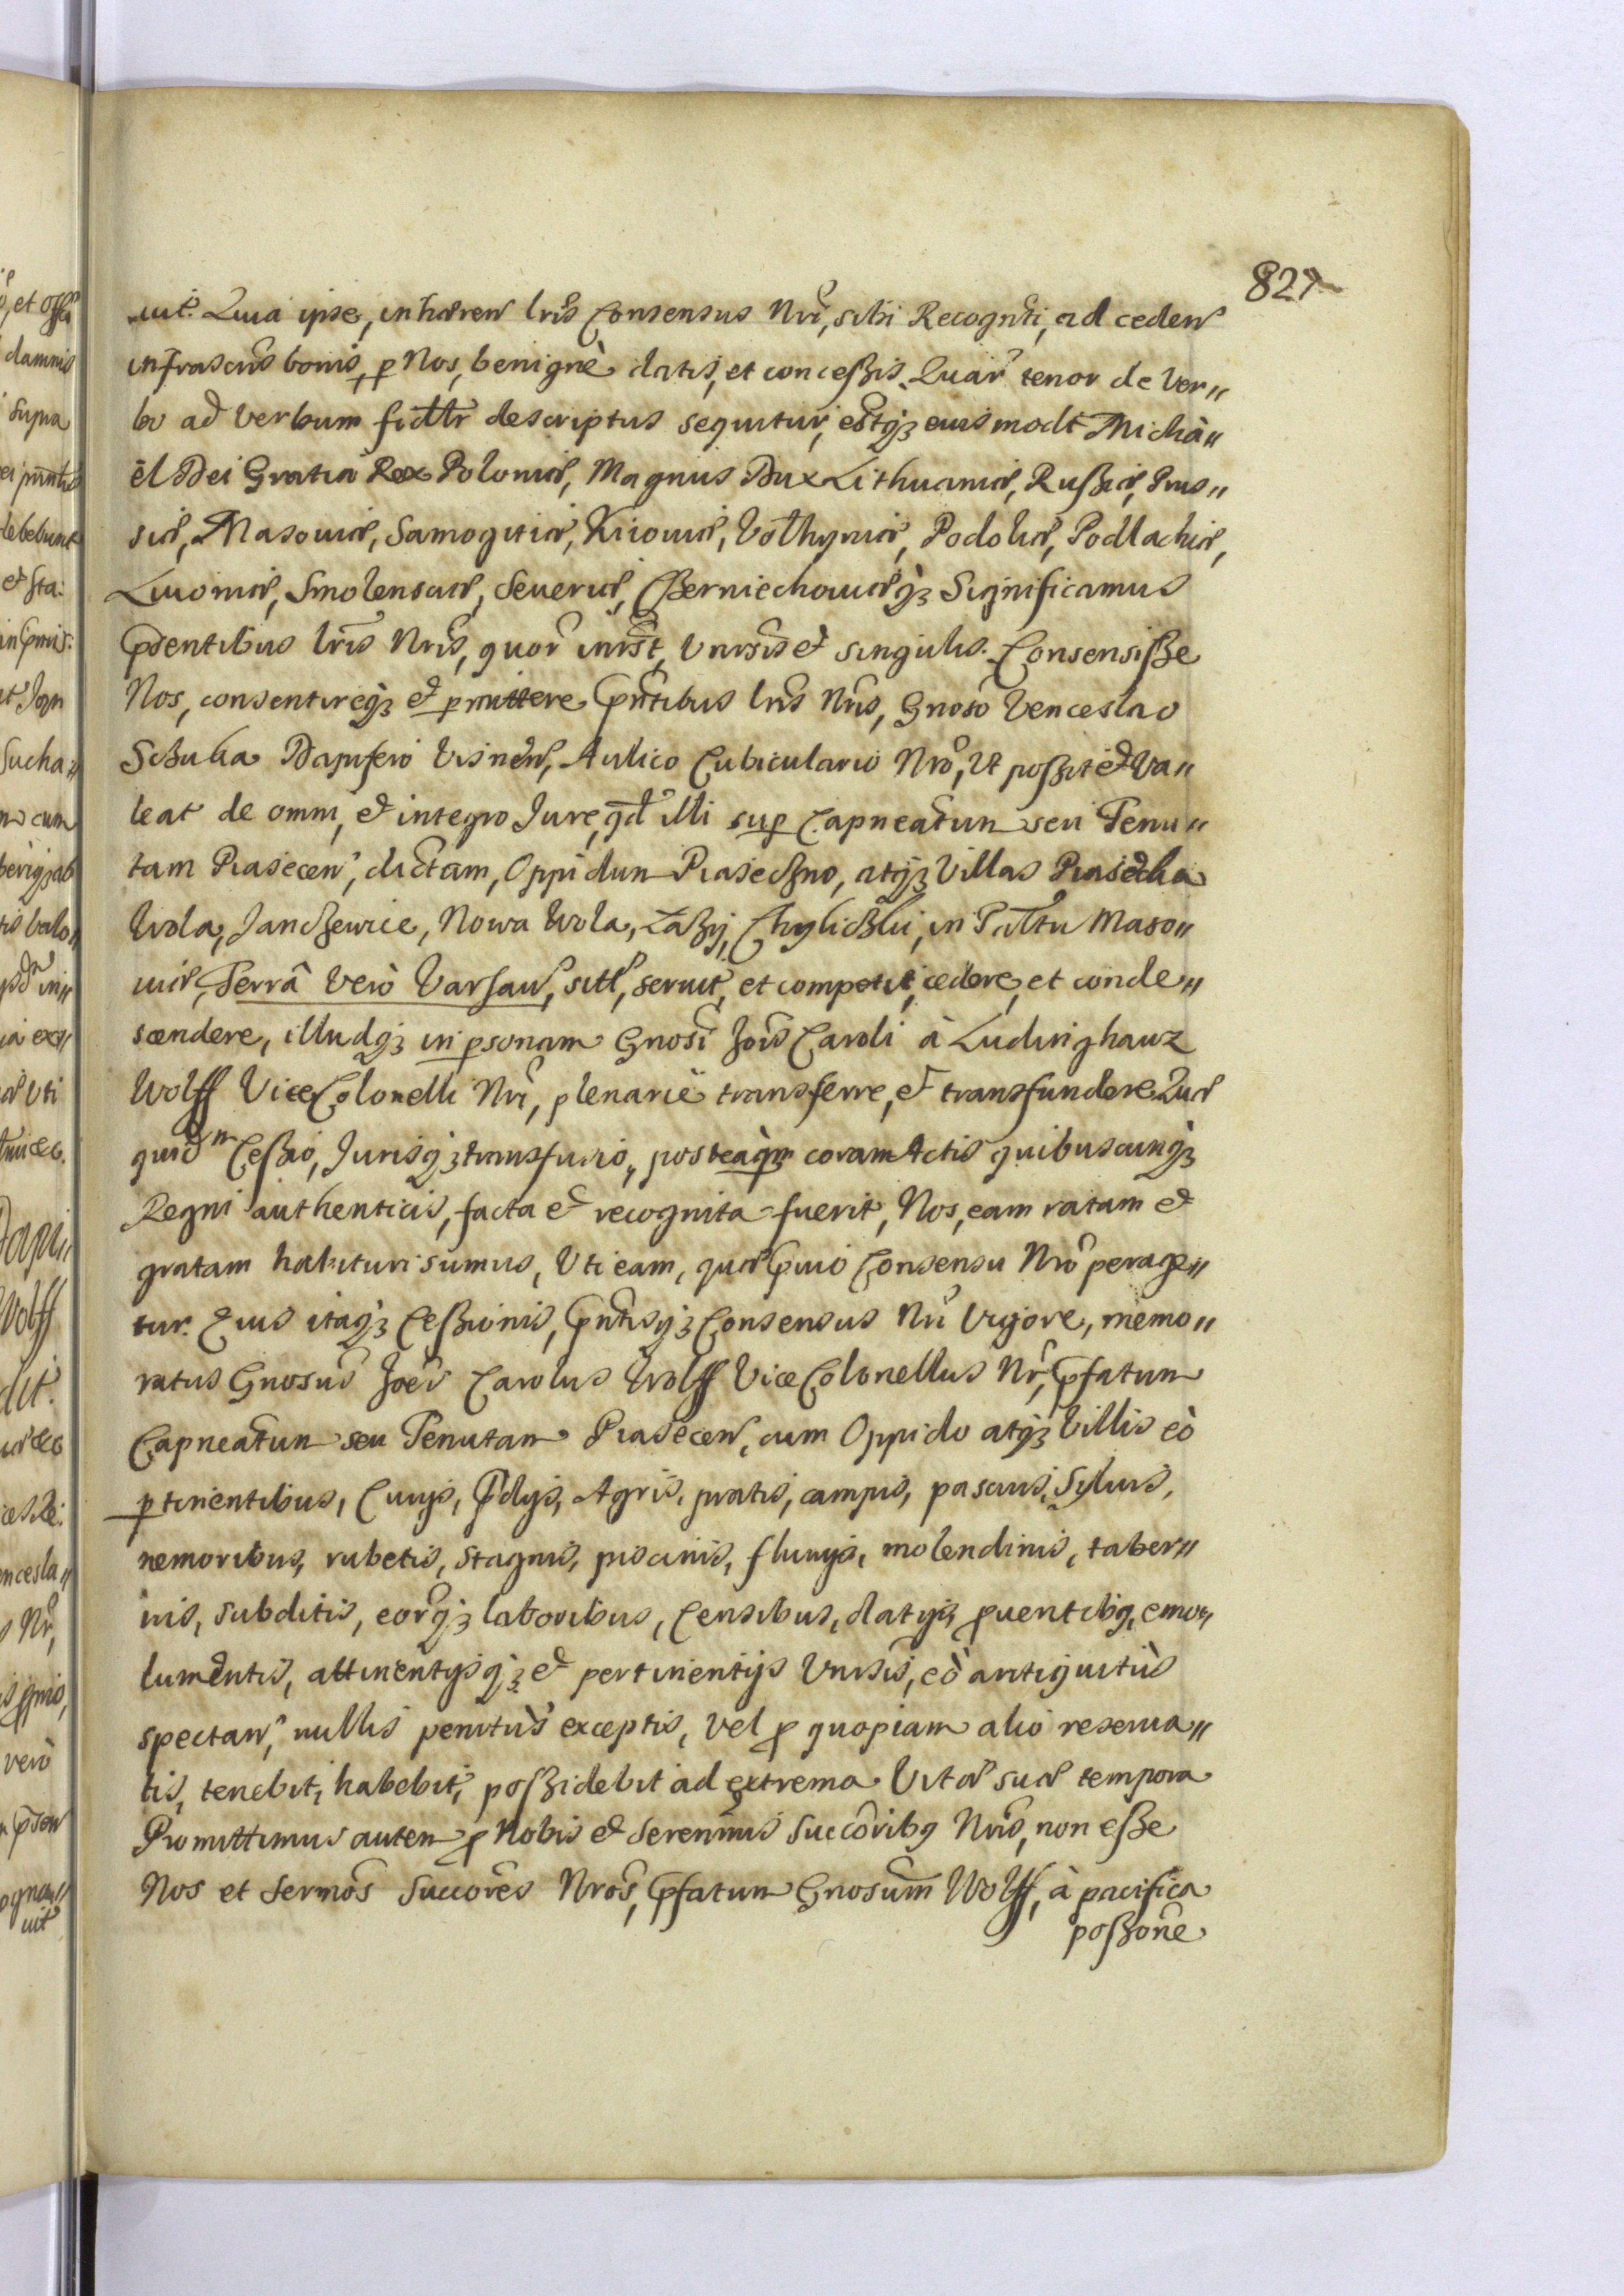 827
uit. Quia ipse, inhæren lris Consensus Nri, sibi Recognti, ad ceden
infrascris bonis, p Nos, benignè datis, et conceßis. Quar tenor de Ver„
bo ad Verbum fidtlr descriptus sequitur, estq3 eiusmodi Michà„
ēl Dei Gratia Rex Poloniæ, Magnus Dux Lithuaniæ, Rußiæ, Prus„
siæ, Masouiæ, Samogitiæ, Kiiouiæ, Volhyniæ, Podoliæ, Podlachiæ,
Liuoniæ, Smolensciæ, Seueriæ, Czerniechouiæq3 Significamus
Pdentibus lris Nris, quor intrst, Vniusis et singulis. Consensiße
Nos, consentireq3 et pmittere Pntibus lris Nris, Gnoso Venceslao
Schulia Dapifero Visnen, Aulico Cubiculario Nro, Vt poßit et Va„
leat de omni, et integro Jure, qd illi sup Capneatum seu Tenu„
tam Piasecen, dictam, Oppidum Piaseczno, atq3 Villas Piasecka
Wola, Janczewice, Nowa Wola, Łazy, Chyliczki, in Pltu Maso„
uiæ, Terrâ Verò Varsaw, sitt, seruit, et competit, cedere, et conde„
scendere, illudq3 in psonam Gnosi Jois Caroli à Ludinghauz
Wolff ViceColonelli Nri, plenariè transferre, et transfundere Quæ
quid m Ceßio, Jurisq3 transfusio, posteaqm coram Actis quibuscunq3
Regni authenticis, facta et recognita fuerit, Nos, eam ratam et
gratam habituri sumus, Vti eam, quæ Puio Consensu Nro perage„
tur. Eius itaq3 Ceßionis, Pntisq3 Consensus Nri Vigore, memo„
ratus Gnosus Joes Carolus Wolff ViceColonellus Nr, Pfatum
Capneatum seu Tenutam Piasecen, cum Oppido atq3 Villis eò
ptinentibus, Curijs, Pdijs, Agris, pratis, campis, pascuis, Syluis,
nemoribus, rubetis, stagnis, piscinis, fluuijs, molendinis, taber„
nis, subditis, eorq3 laboribus, Censibus, datijs, puentibq, emo„
lumentis, attinentijsq3 et pertinentijs Vniusis, eò antiquitùs
spectan, nullis penitùs exceptis, Vel p quopiam alio reserua„
tis, tenebit, habebit, poßidebit ad extrema Vitæ suæ tempora
Promittimus autem p Nobis et Serenmis Succoribq Nris, non eße
Nos et Sermos Succores Nros, Pfatum Gnosum Wolff, à pacifica
poßone